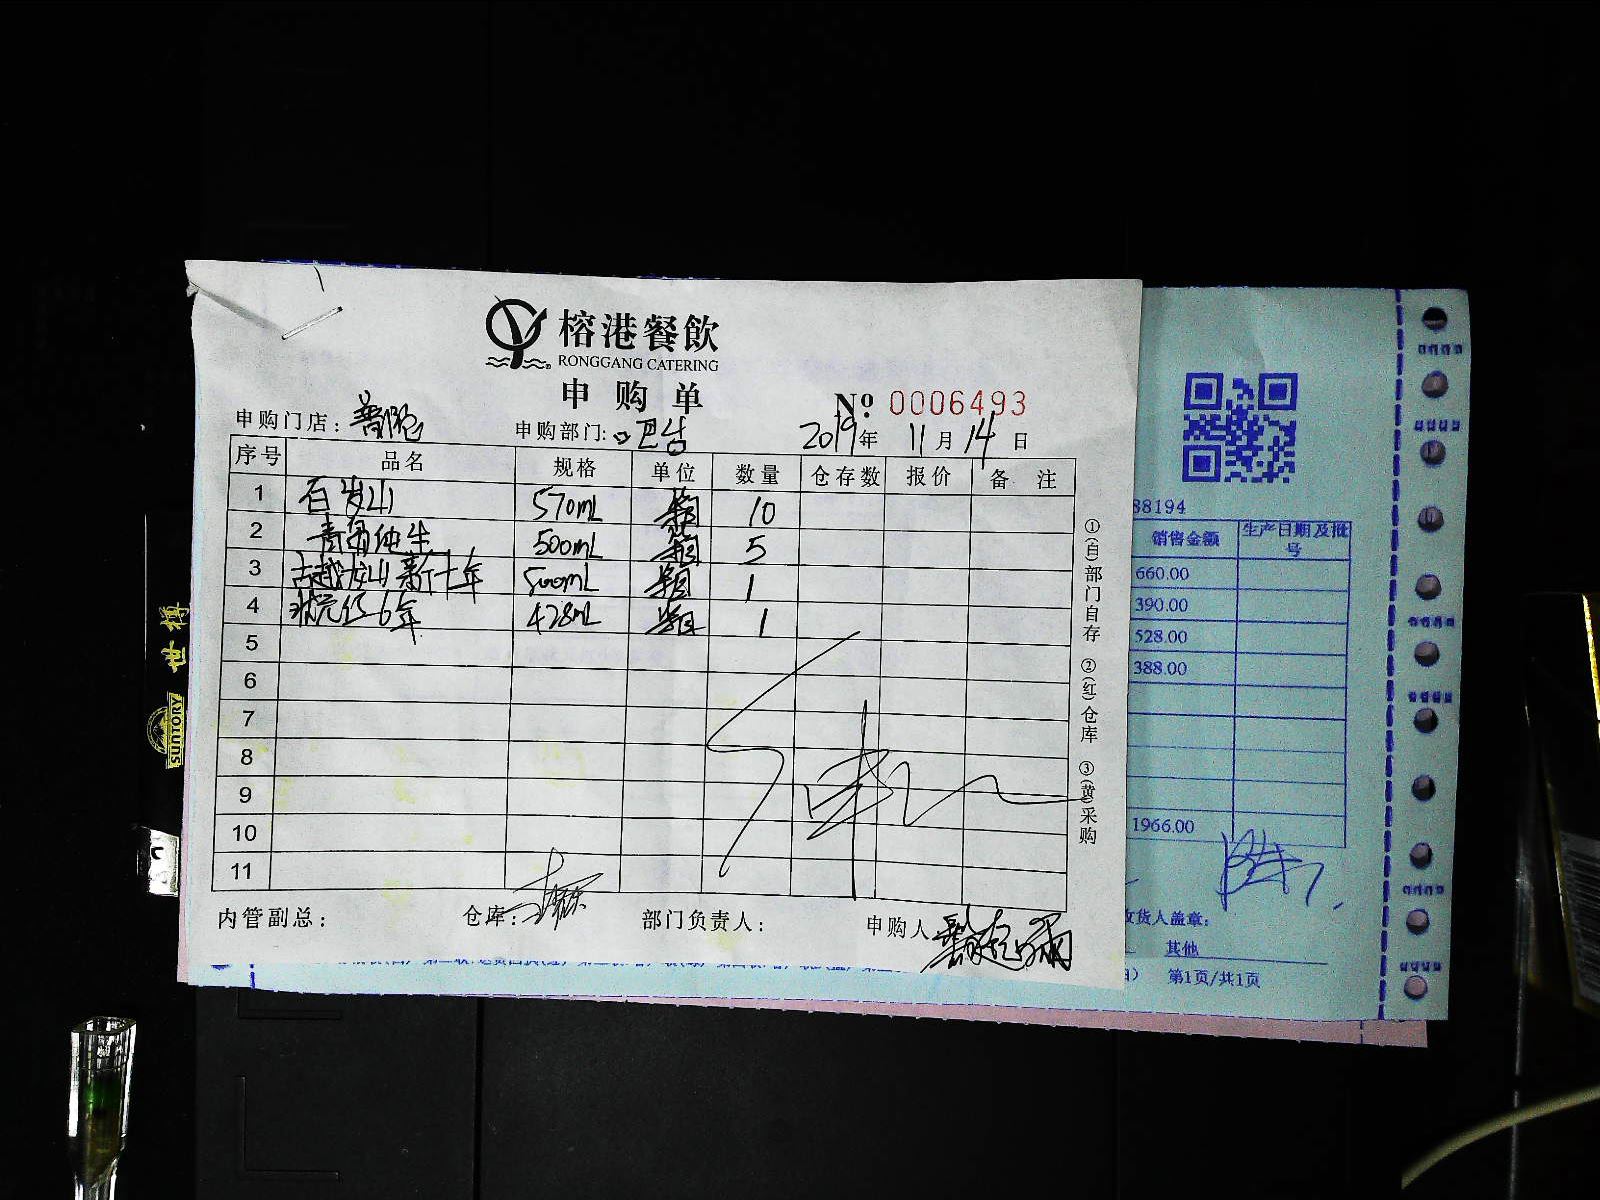 榕港餐飲
RONGGANG CATERING
申购单
№ 0006493
申购门店：普陀 申购部门：吧台 2019年 11月 14日
序号 品名 规格 单位 数量 仓存数 报价 备注
1 百岁山 570mL 箱 10
2 青岛纯生 500mL 箱 5
3 古越龙山新十年 500mL 箱 1
4 状元红6年 428mL 箱 1
5
6
7
8
9
10
11
内管副总： 仓库： 部门负责人： 申购人
①(白)部门自存 ②(红)仓库 ③(黄)采购
38194
销售金额 生产日期及批号
660.00
390.00
528.00
388.00
1966.00
收货人盖章：
其他
第1页/共1页
世博
SUNTORY